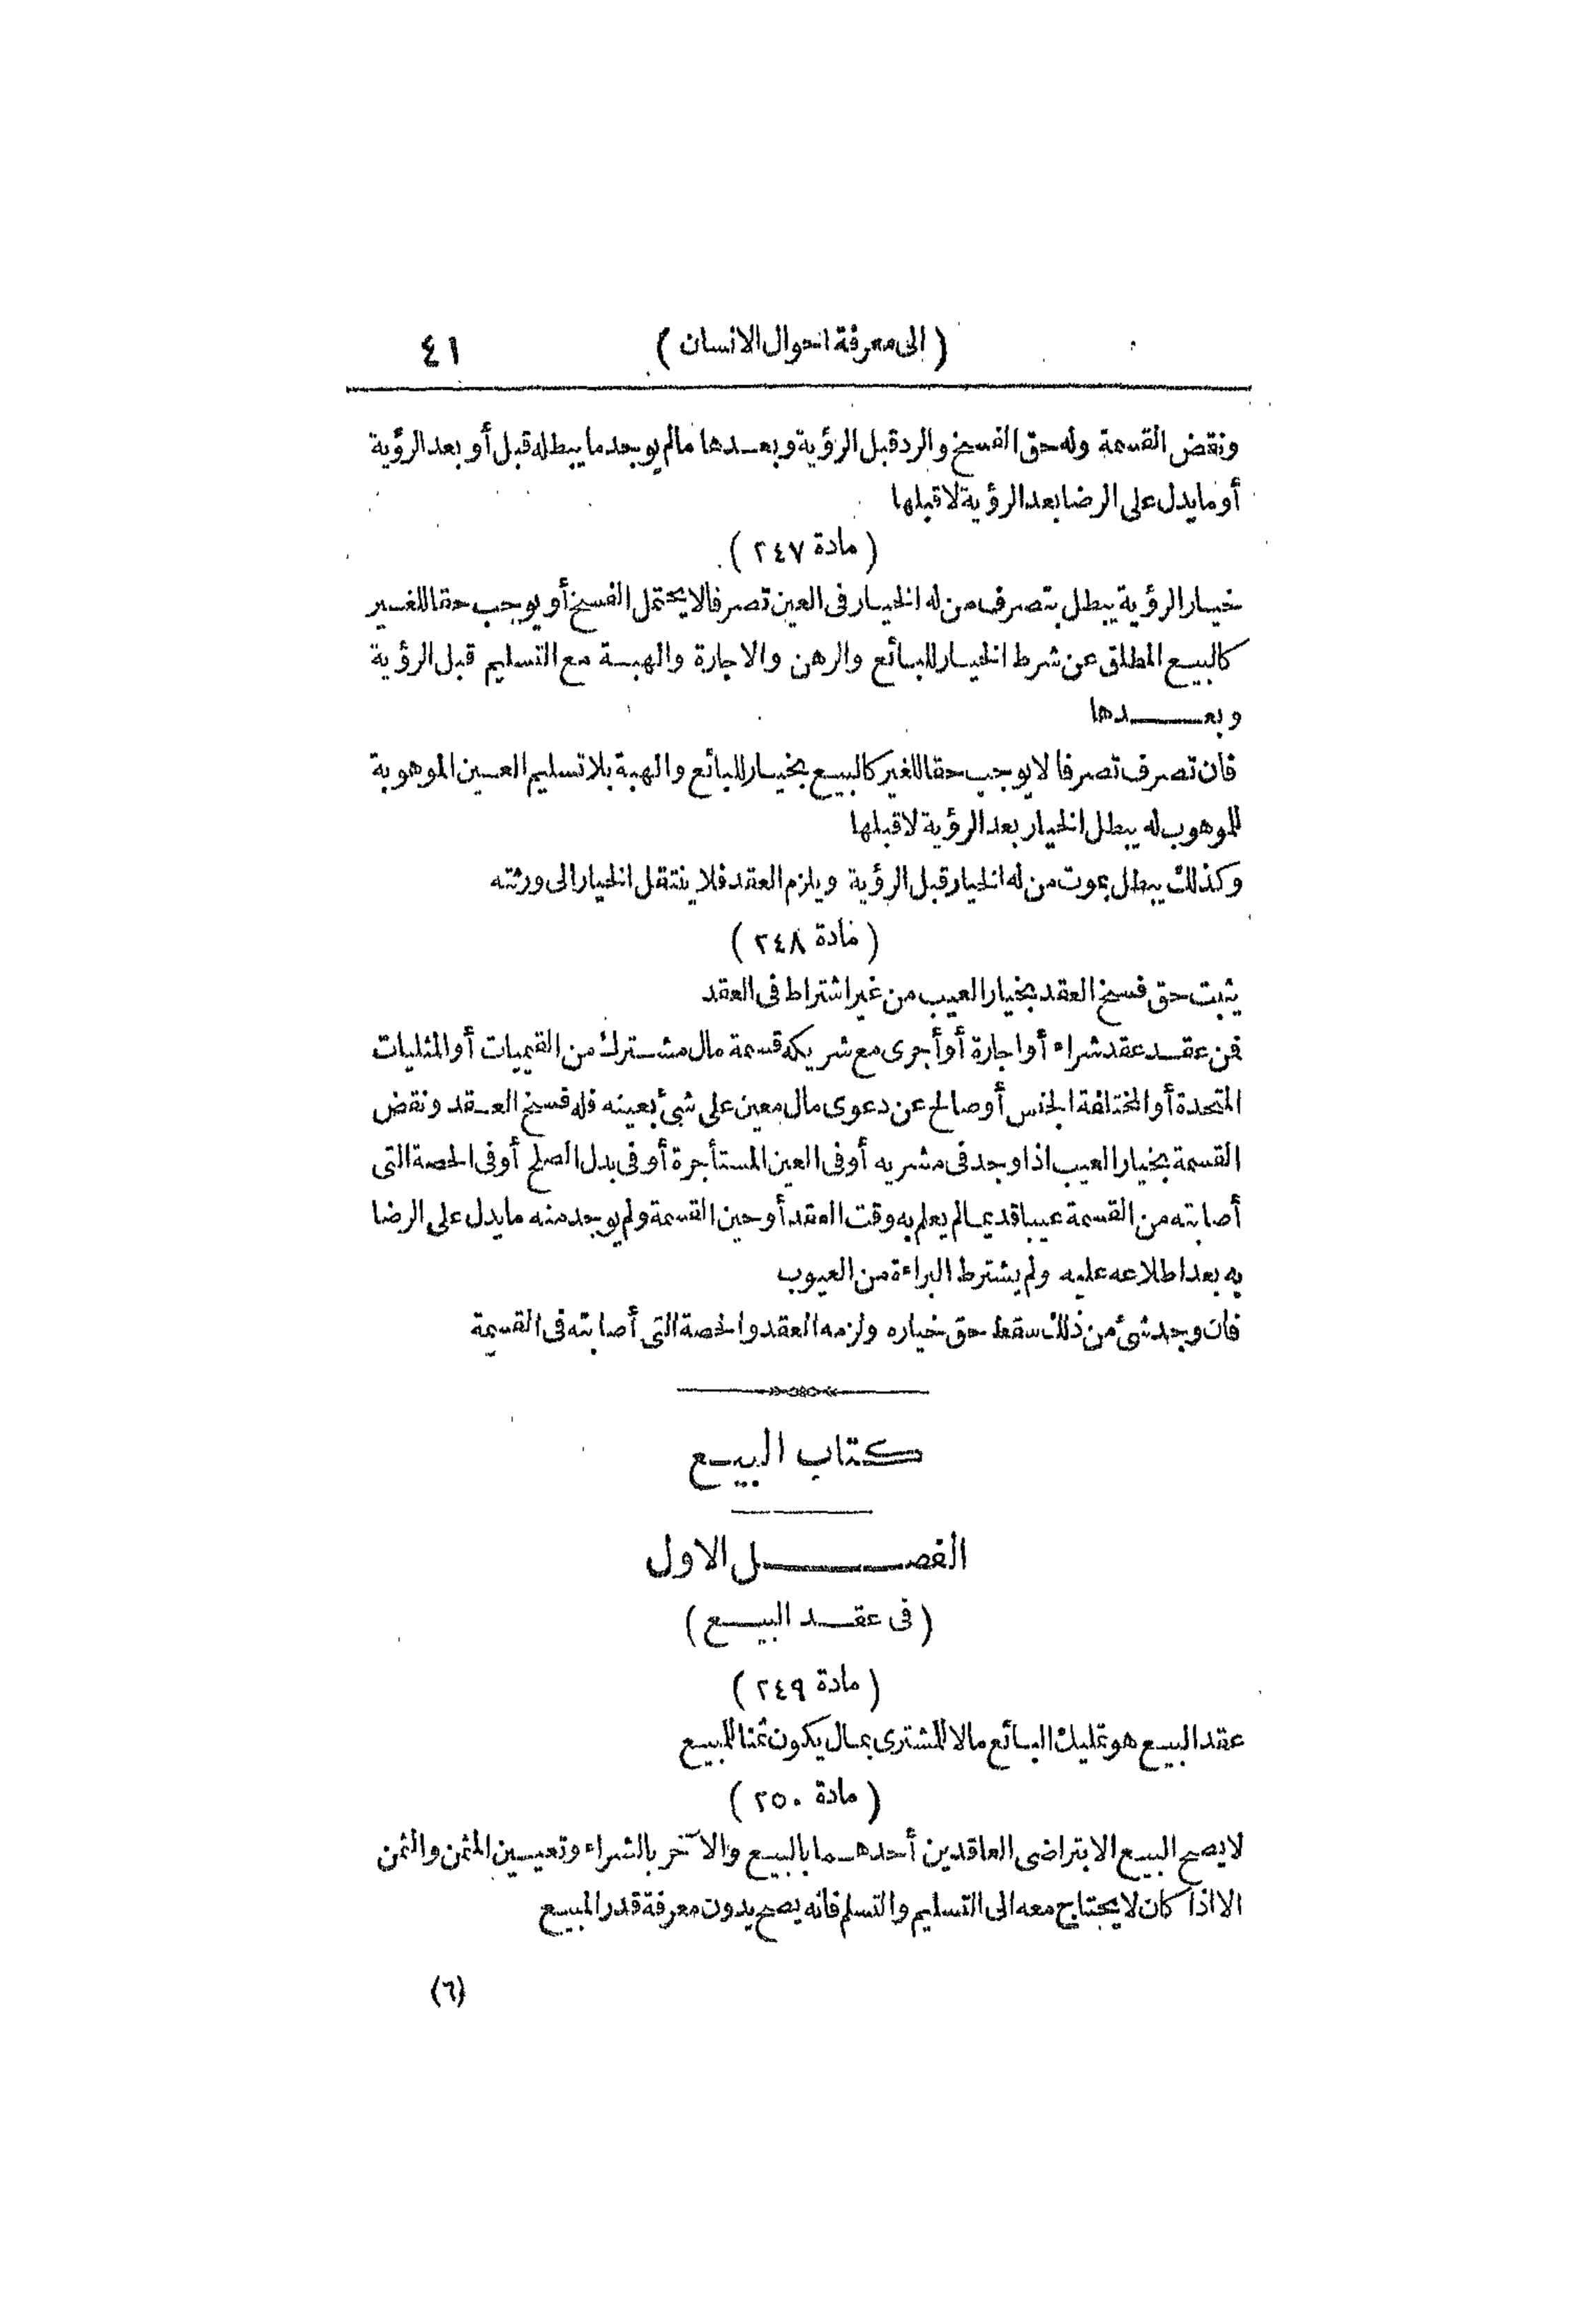 ( الى معرفة احوال الانسان ) ٤١
ونقض القسمة وله حق الفسخ والرد قبل الرؤية وبعدها مالم يوجد ما يبطله قبل أو بعد الرؤية
أو مايدل على الرضا بعد الرؤية لا قبلها
( مادة ٢٤٧ )
خيار الرؤية يبطل بتصرف من له الخيار فى العين تصرفا لا يحتمل الفسخ أو يوجب حقا للغير
كالبيع المطلق عن شرط الخيار للبائع والرهن والاجارة والهبة مع التسليم قبل الرؤية
وبعدها
فان تصرف تصرفا لا يوجب حقا للغير كالبيع بخيار للبائع والهبة بلا تسليم العين الموهوبة
للموهوب له يبطل الخيار بعد الرؤية لا قبلها
وكذلك يبطل بموت من له الخيار قبل الرؤية ويلزم العقد فلا ينتقل الخيار الى ورثته
( مادة ٢٤٨ )
يثبت حق فسخ العقد بخيار العيب من غير اشتراط فى العقد
فمن عقد عقد شراء أو اجارة أو أجرى مع شريكه قسمة مال مشترك من القيميات أو المثليات
المتحدة أو المختلفة الجنس أو صالح عن دعوى مال معين على شئ بعينه فله فسخ العقد ونقض
القسمة بخيار العيب اذا وجد فى مشريه أو فى العين المستأجرة أو فى بدل الصلح أو فى الحصة التى
أصابته من القسمة عيبا قديما لم يعلم به وقت العقد أو حين القسمة ولم يوجد منه مايدل على الرضا
به بعد اطلاعه عليه ولم يشترط البراءة من العيوب
فان وجد شئ من ذلك سقط حق خياره ولزمه العقد والحصة التى أصابته فى القسمة
كتاب البيع
الفصل الاول
( فى عقد البيع )
( مادة ٢٤٩ )
عقد البيع هو تمليك البائع مالا للمشترى بمال يكون ثمنا للمبيع
( مادة ٢٥٠ )
لا يصح البيع الا بتراضى العاقدين أحدهما بالبيع والآخر بالشراء وتعيين المثمن والثمن
الا اذا كان لا يحتاج معه الى التسليم والتسلم فانه يصح بدون معرفة قدر المبيع
(٦)